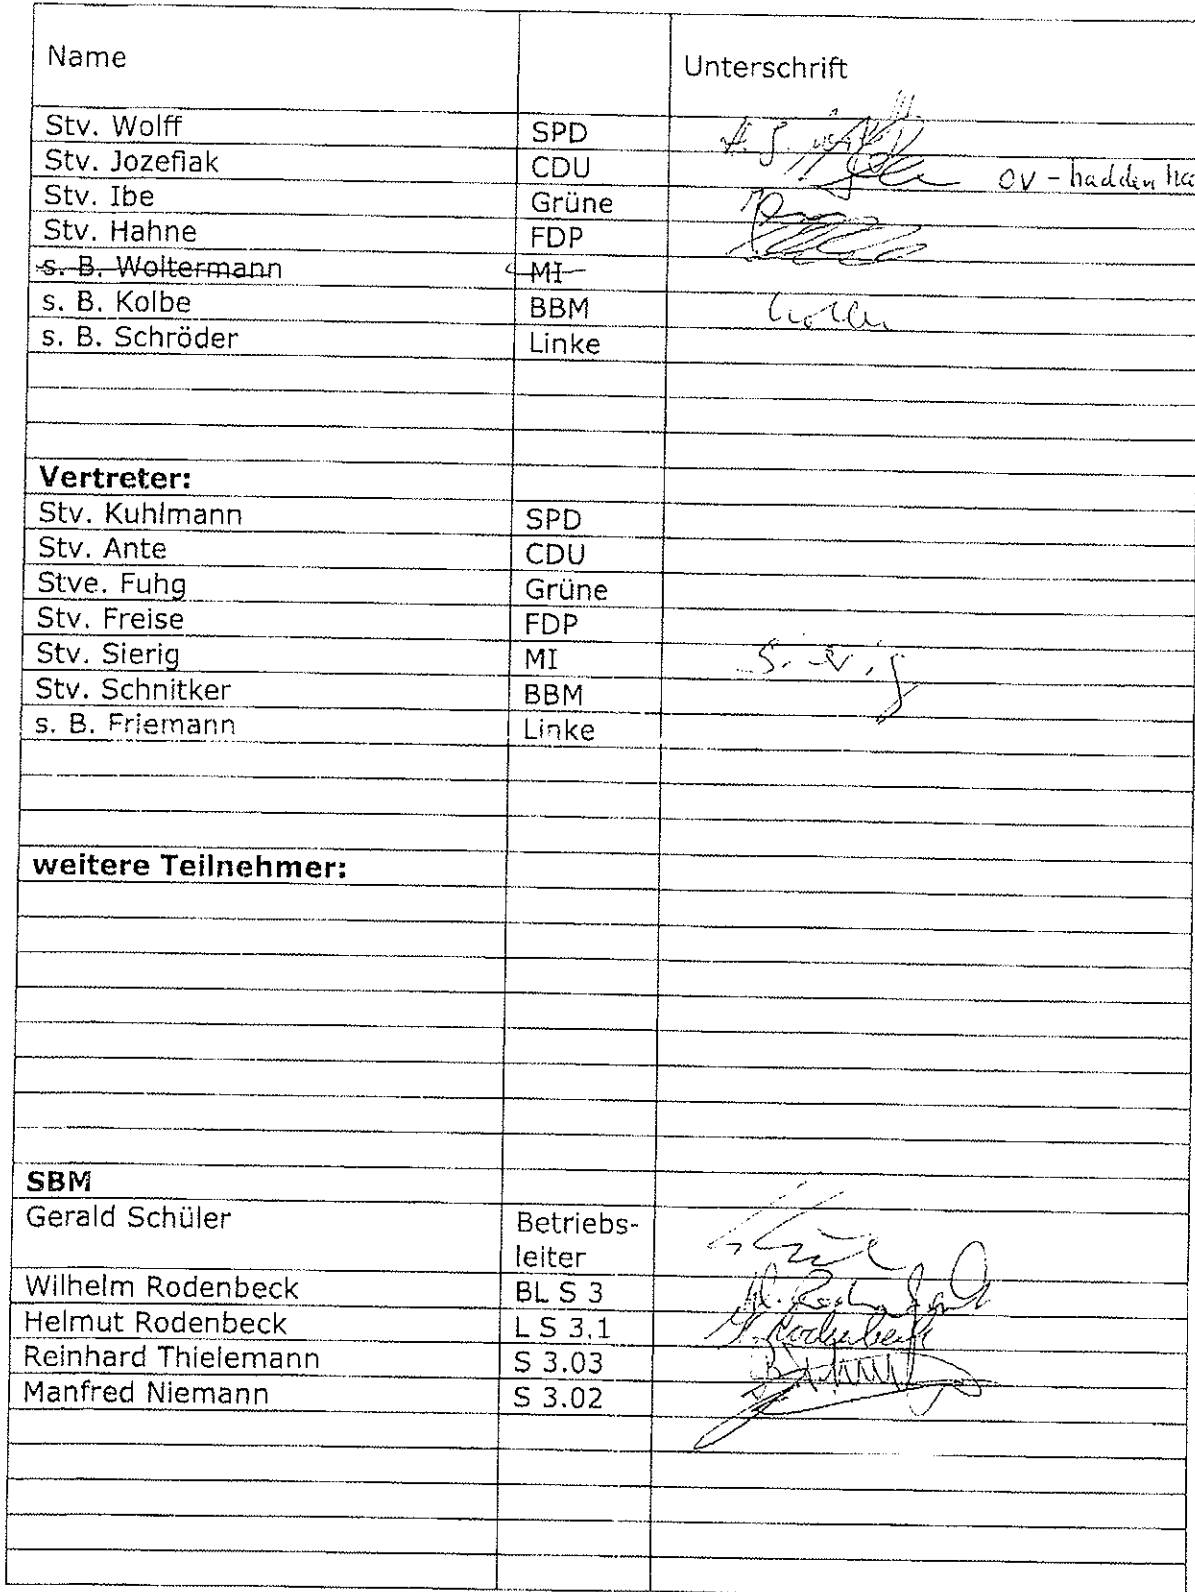 Name Unterschrift
Stv. Wolff SPD
Stv. Jozefiak CDU OV - hadden ha
Stv. Ibe Grüne
Stv. Hahne FDP
s. B. Woltermann MI
s. B. Kolbe BBM Kolbe
s. B. Schröder Linke
Vertreter:
Stv. Kuhlmann SPD
Stv. Ante CDU
Stve. Fuhg Grüne
Stv. Freise FDP
Stv. Sierig MI Sierig
Stv. Schnitker BBM
s. B. Friemann Linke
weitere Teilnehmer:
SBM
Gerald Schüler Betriebs-
leiter
Wilhelm Rodenbeck BL S 3
Helmut Rodenbeck L S 3.1 H. Rodenbeck
Reinhard Thielemann S 3.03
Manfred Niemann S 3.02